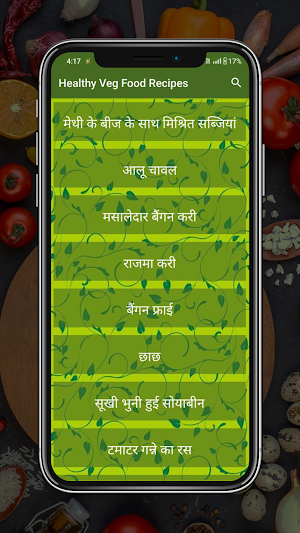 4:17
17%
Healthy Veg Food Recipes
मेथी के बीज के साथ मिश्रित सब्जियां
आलू चावल
मसालेदार बैंगन करी
राजमा करी
बैंगन फ्राई
छाछ
सूखी भुनी हुई सोयाबीन
टमाटर गन्ने का रस